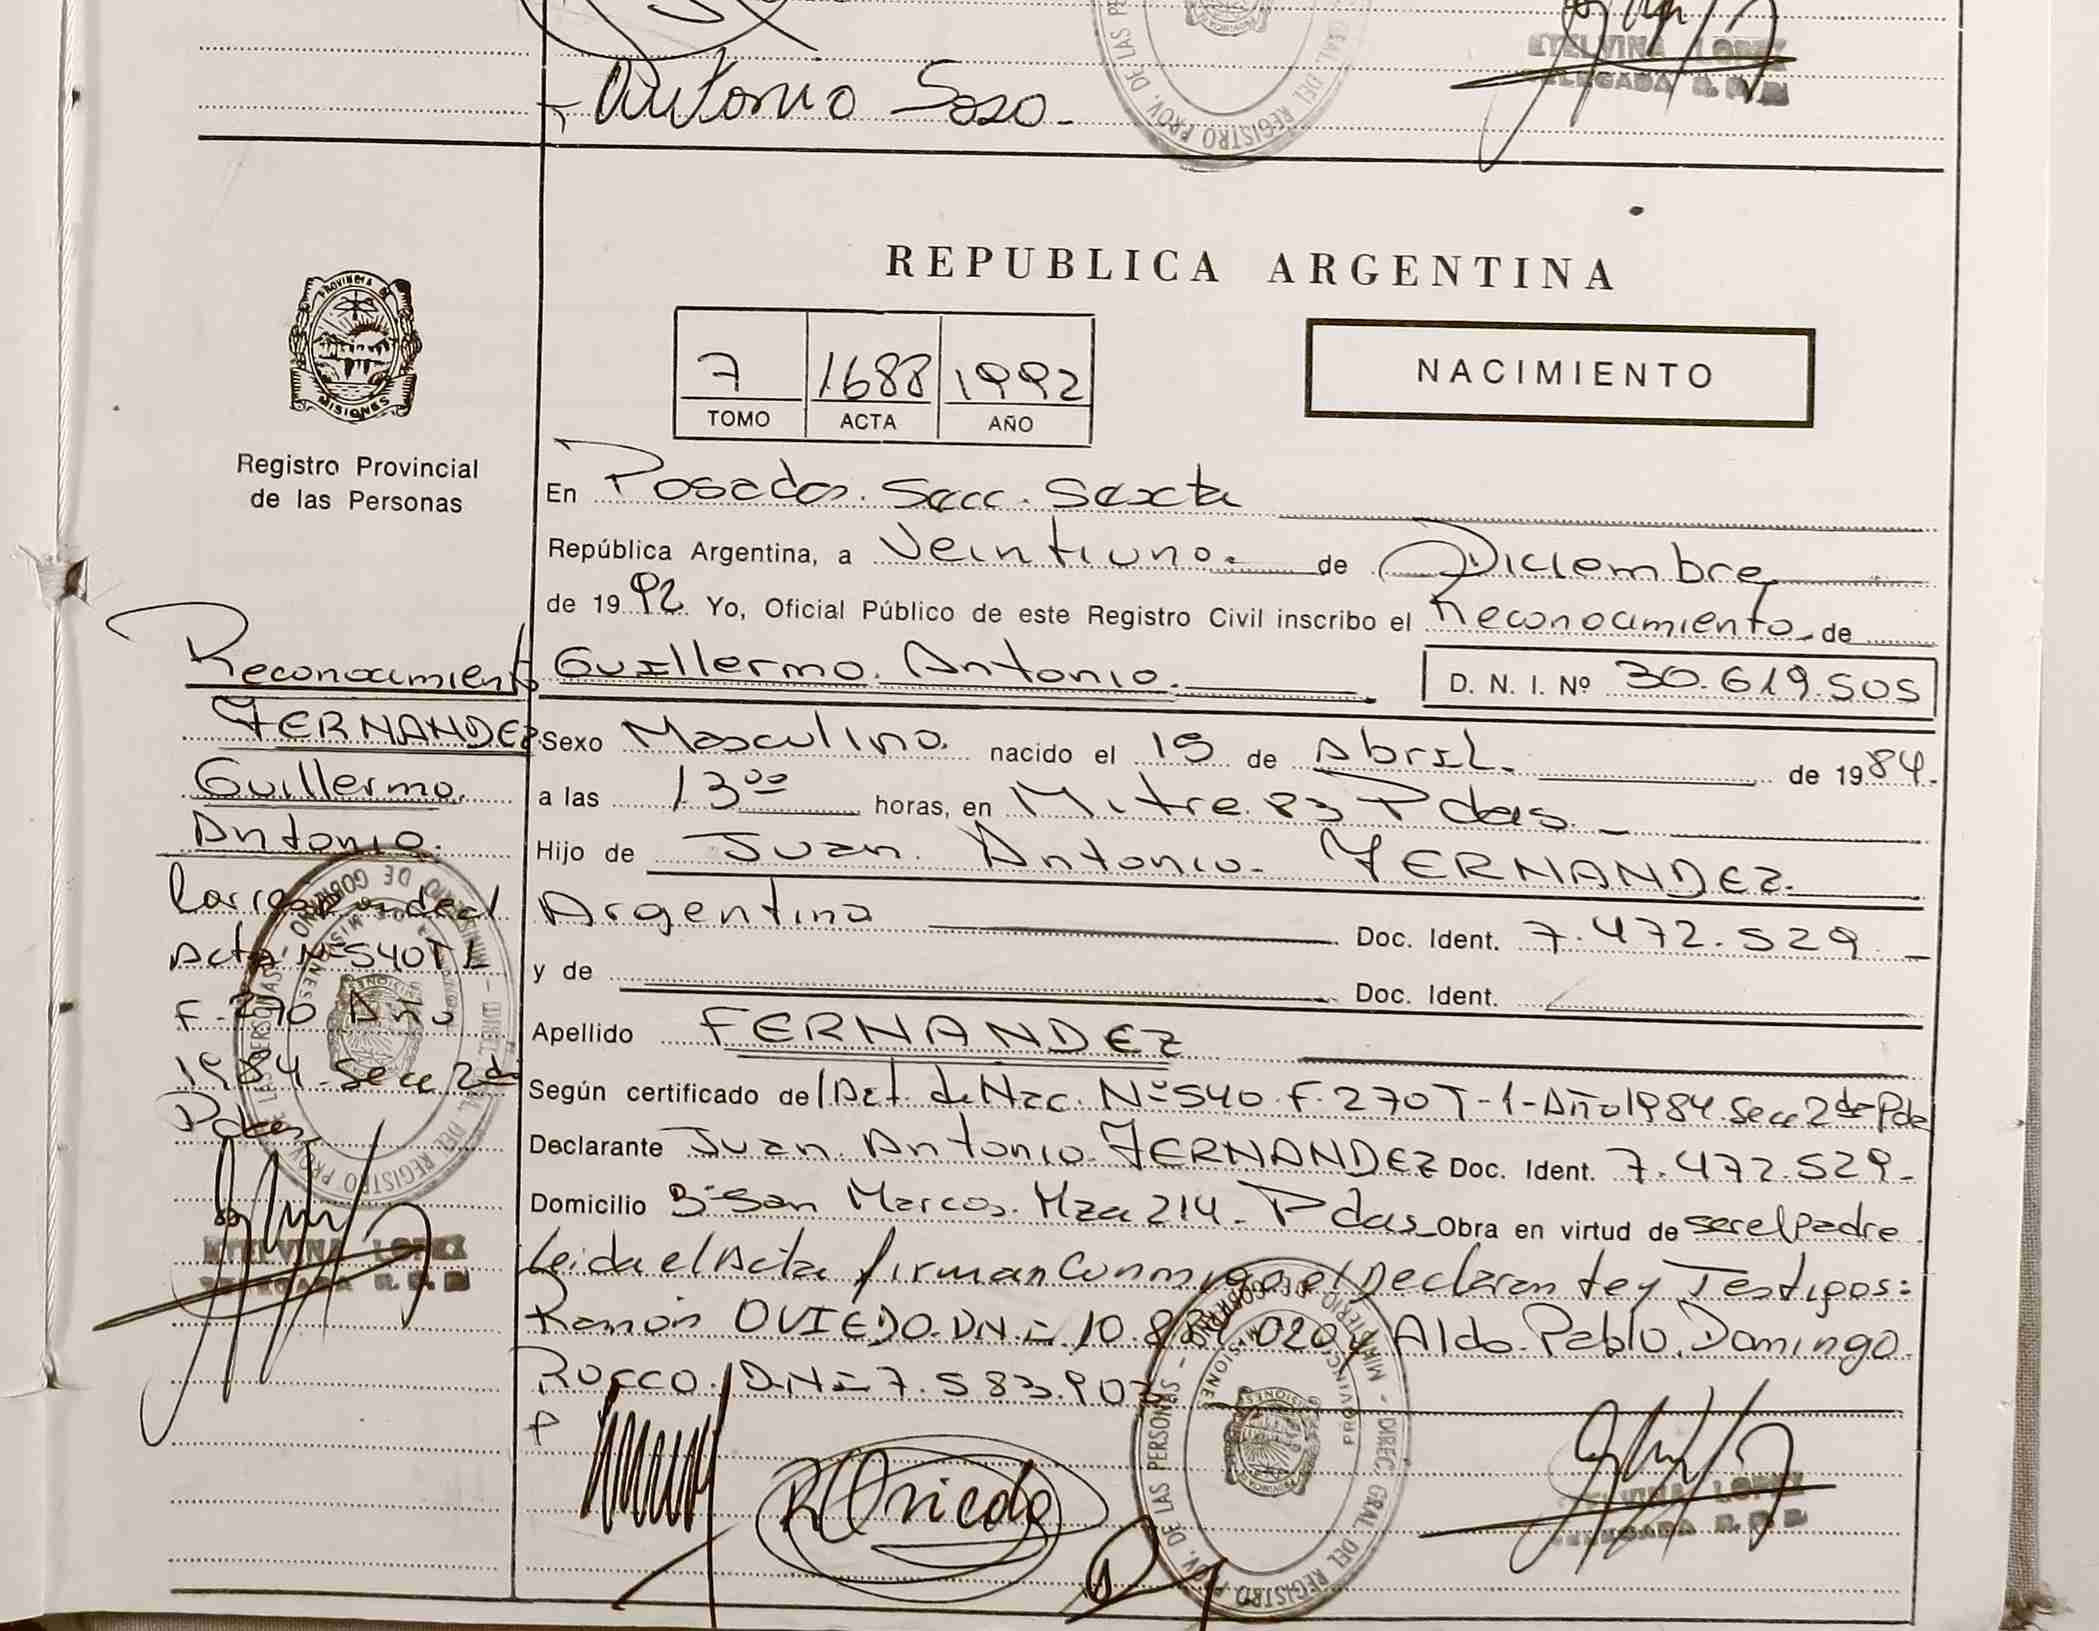 Antonio Soso.-
ETELVINA LOPEZ
DELEGADA R. P. P.
REPUBLICA ARGENTINA
7 1688 1992
TOMO ACTA AÑO
NACIMIENTO
PROVINCIA DE
MISIONES
Registro Provincial
de las Personas
En Posadas. Secc. Sexta
República Argentina, a Veintiuno. de Diciembre
de 1992. Yo, Oficial Público de este Registro Civil inscribo el Reconocimiento de
Guillermo. Antonio. D. N. I. Nº 30.619.505
Sexo Masculino. nacido el 15 de Abril. de 1984.
a las 13 00 horas, en Mitre. 83 Pdas. -
Hijo de Juan. Antonio. FERNANDEZ.
Argentino Doc. Ident. 7.472.529 -
y de Doc. Ident.
Apellido FERNANDEZ
Según certificado de Act. de Nac. Nº 540. F. 270 T-1-Año 1984. Secc 2da Pda
Declarante Juan. Antonio. FERNANDEZ Doc. Ident. 7.472.529.-
Domicilio Bº San Marcos. Mza 214. Pdas Obra en virtud de ser el padre
Leida el Acta firman Conmigo el Declarante y Testigos:
Ramón OVIEDO. DNI= 10.884.020 y Aldo. Pablo. Domingo.
ROCCO. DNI= 7.583.903
R Oviedo
ETELVINA LOPEZ
DELEGADA R. P. P.
Reconocimiento
FERNANDEZ
Guillermo.
Antonio.
Corresponde al
Acta Nº 540 T 1
F. 270 Año
1984. Secc 2da
Pdas
ETELVINA LOPEZ
DELEGADA R. P. P.
MINISTERIO DE GOBIERNO - DIREC. GRAL. DEL REGISTRO PROV. DE LAS PERSONAS -
PROVINCIA DE MISIONES